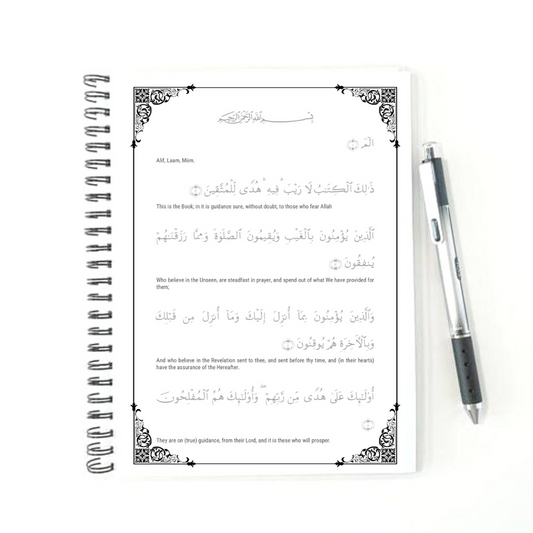 بِسْمِ ٱللَّهِ ٱلرَّحْمَٰنِ ٱلرَّحِيمِ
الٓمٓ ۝١
Alif, Laam, Miim.
ذَٰلِكَ ٱلْكِتَٰبُ لَا رَيْبَ ۛ فِيهِ ۛ هُدًى لِّلْمُتَّقِينَ ۝٢
This is the Book; in it is guidance sure, without doubt, to those who fear Allah
ٱلَّذِينَ يُؤْمِنُونَ بِٱلْغَيْبِ وَيُقِيمُونَ ٱلصَّلَوٰةَ وَمِمَّا رَزَقْنَٰهُمْ
يُنفِقُونَ ۝٣
Who believe in the Unseen, are steadfast in prayer, and spend out of what We have provided for
them;
وَٱلَّذِينَ يُؤْمِنُونَ بِمَآ أُنزِلَ إِلَيْكَ وَمَآ أُنزِلَ مِن قَبْلِكَ
وَبِٱلْءَاخِرَةِ هُمْ يُوقِنُونَ ۝٤
And who believe in the Revelation sent to thee, and sent before thy time, and (in their hearts)
have the assurance of the Hereafter.
أُو۟لَٰٓئِكَ عَلَىٰ هُدًى مِّن رَّبِّهِمْ ۖ وَأُو۟لَٰٓئِكَ هُمُ ٱلْمُفْلِحُونَ
۝٥
They are on (true) guidance, from their Lord, and it is these who will prosper.